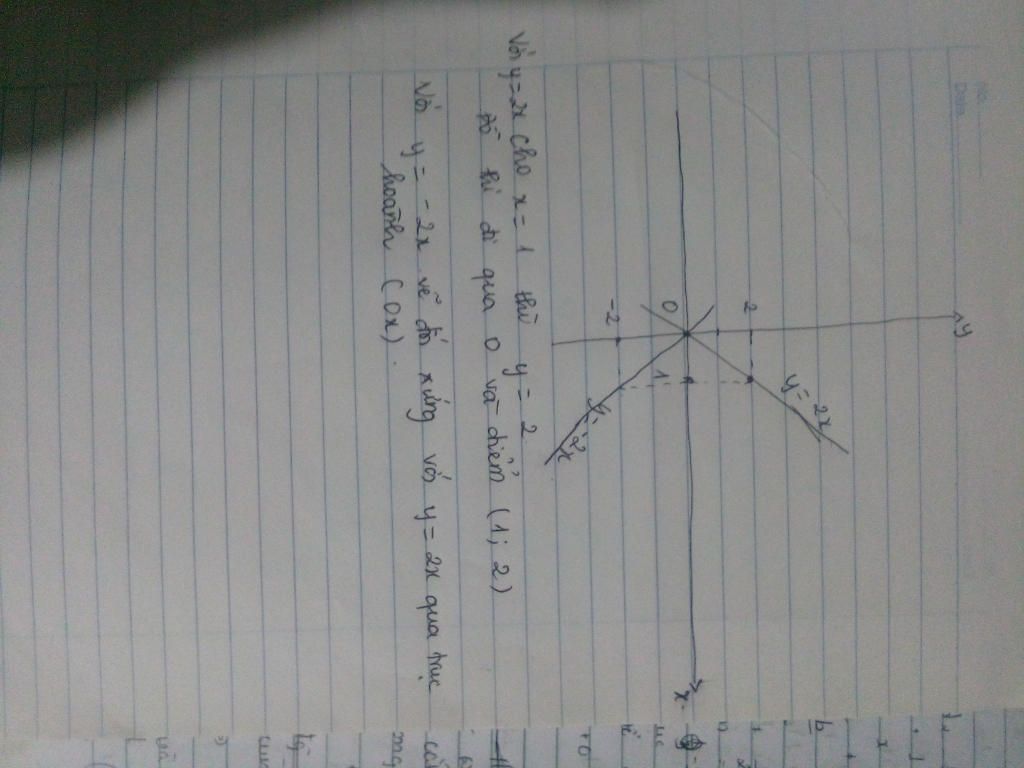 No.
Date
y
2
y = 2x
0
1
x
-2
y = -2x
Với y = 2x cho x = 1 thì y = 2
đồ thị đi qua 0 và điểm (1; 2)
Với y = -2x vẽ đối xứng với y = 2x qua trục
hoành (0x).